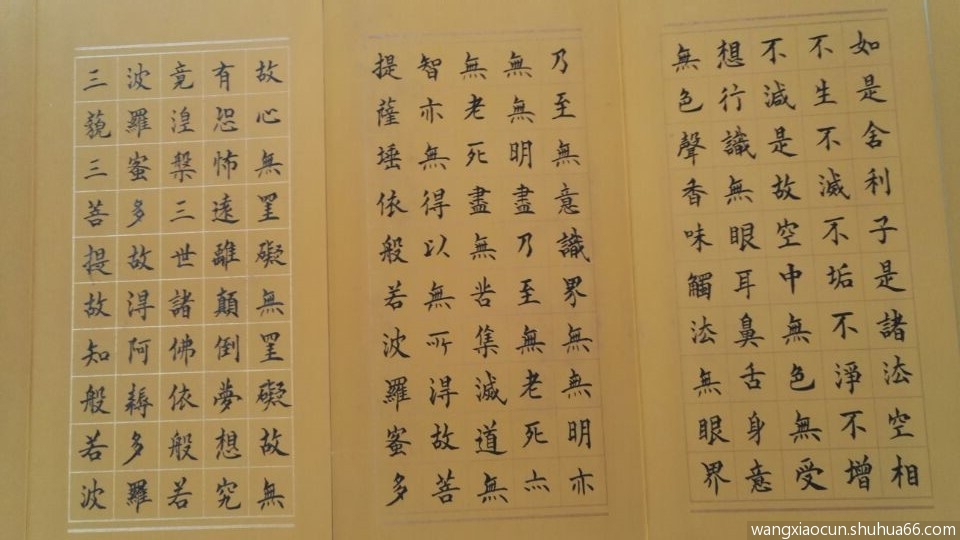 如是舍利子是諸法空相
不生不滅不垢不淨不增
不減是故空中無色無受
想行識無眼耳鼻舌身意
無色聲香味觸法無眼界
乃至無意識界無無明亦
無無明盡乃至無老死亦
無老死盡無苦集滅道無
智亦無得以無所得故菩
提薩埵依般若波羅蜜多
故心無罣礙無罣礙故無
有恐怖遠離顛倒夢想究
竟涅槃三世諸佛依般若
波羅蜜多故得阿耨多羅
三藐三菩提故知般若波
wangxiaocun.shuhua66.com